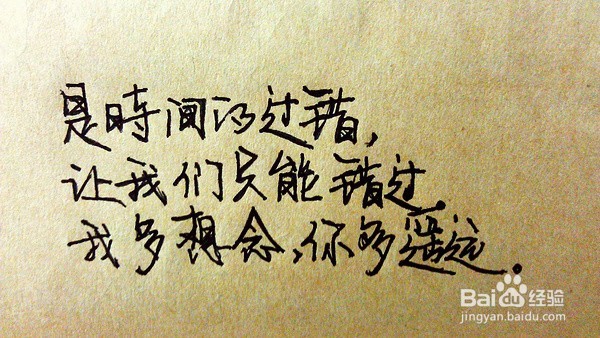 是时间的过错,
让我们只能错过,
我多想念,你多遥远.
Baidu经验
jingyan.baidu.com